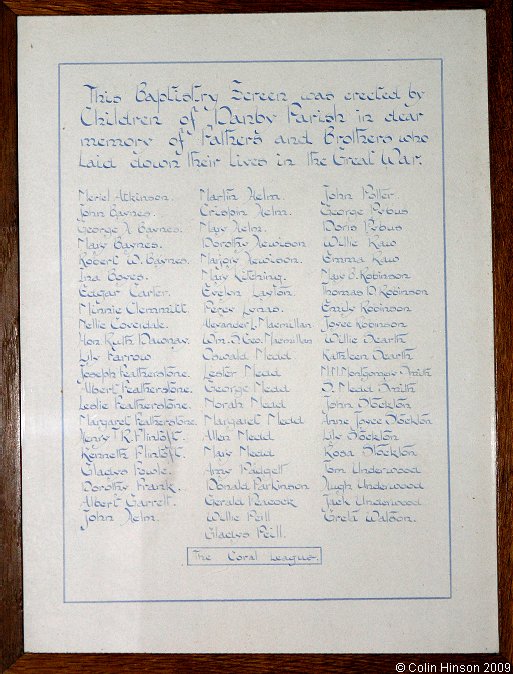 This Baptistry Screen was erected by
Children of Danby Parish in dear
memory of Fathers and Brothers who
laid down their lives in the Great War.
Meriel Atkinson.
John Baynes.
George V Baynes.
Mary Baynes.
Robert W. Baynes.
Ina Boyes.
Edgar Carter.
Minnie Clemmitt.
Nellie Coverdale.
Hon Ruth Dawnay.
Lily Farrow
Joseph Featherstone.
Albert Featherstone.
Leslie Featherstone.
Margaret Featherstone.
Henry T R. Flintoft.
Kenneth Flintoft.
Gladys Fowle.
Dorothy Frank.
Albert Garrett.
John Helm.
Martin Helm.
Crispin Helm.
Mary Helm.
Dorothy Hewison
Marjory Hewison.
Mary Kitching.
Evelyn Layton
Percy Lynas.
Alexander L. Macmillan
Wm. D. Geo. Macmillan
Oswald Mead
Lester Mead
George Mead
Norah Mead
Margaret Mead
Allen Mead
Mary Mead
Amy Padgett
Donald Parkinson
Gerald Peacock
Willie Peill
Gladys Peill.
John Potter.
George Pybus
Doris Pybus
Willie Raw
Emma Raw
Mary B. Robinson
Thomas D Robinson
Emily Robinson
Joyce Robinson
Willie Searth
Kathleen Searth
M.M. Montgomery Smith
D. Mead Smith
John Stockton
Anne Joyce Stockton
Lily Stockton
Rosa Stockton
Tom Underwood
Hugh Underwood
Jack Underwood
Greta Watson.
The Coral League.
© Colin Hinson 2009